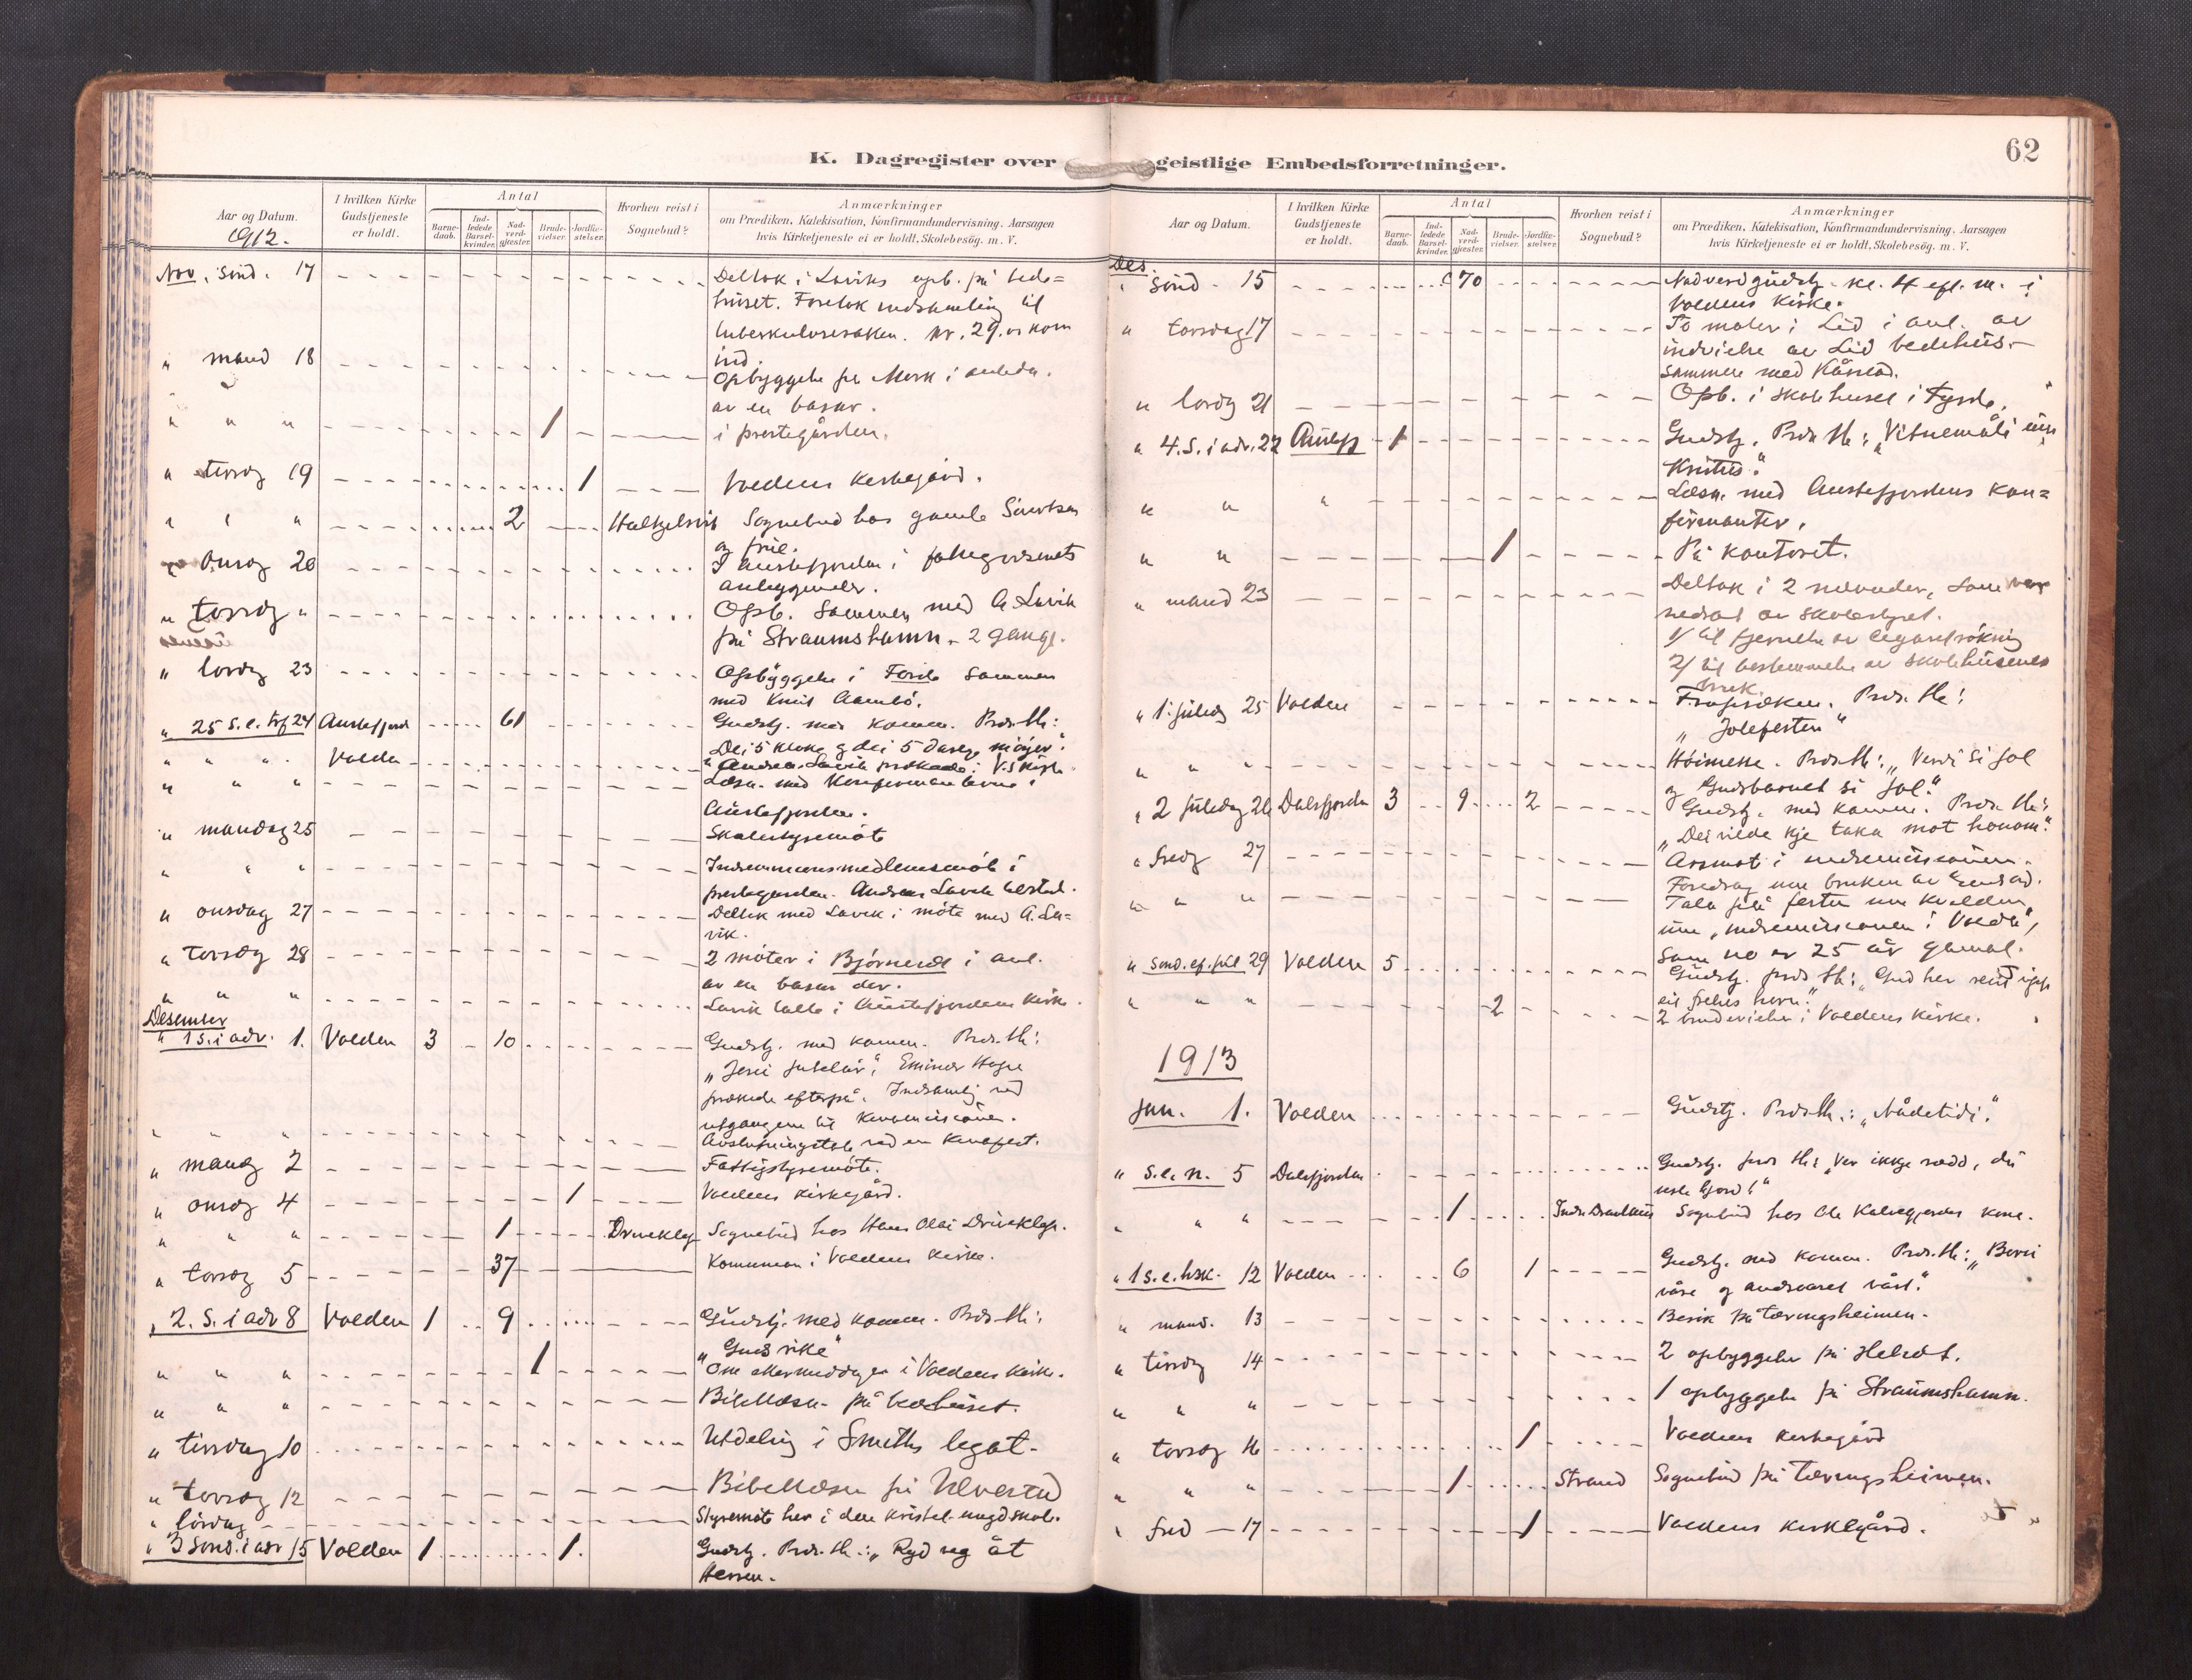 62
K. Dagregister over geistlige Embedsforretninger.
Aar og Datum.
1912.
I hvilken Kirke
Gudstjeneste
er holdt.
Antal
Barne-
daab.
Ind-
ledede
Barsel-
kvinder.
Nad-
verd-
gjester.
Brude-
vielser.
Jordfæ-
stelser.
Hvorhen reist i
Sognebud?
Anmærkninger
om Prædiken, Katekisation, Konfirmandundervisning, Aarsagen
hvis Kirketjeneste ei er holdt, Skolebesög, m. V.
Nov. Sönd. 17 Deltok i Laviks opb. på bede=
huset. Foretok indsamling til
tuberkulosesaken. kr. 29. kom
ind.
" mand 18 Opbyggelse på Mork i
av en basar.
" " " 1 i prestegården.
" tirsdg 19 1 Voldens kirkegård.
" " " 2 Sognebud hos gamle
og frue.
" onsdg 20 I Austefjorden i
" torsdg " Opb. sammen med A. Lavik
på Straumshamn - 2 gange.
" lørdg 23 Opbyggelse i sammen
med Knut
" 25 S. e. trf 24 Austefjord 61 Gudstj. med komm. Præd. th:
"Dei 5 kloke og dei 5 møyer".
" " " Volden Andreas Lavik prækede i V.s kirke
" " " Læsn. med konfirmanterne i
Austefjorden.
" mandag 25 Skolestyremöte
" " " Indremissionsmedlemsmöte i
prestegarden. Andreas Lavik
" onsdag 27 Deltok med Lavik i möte med A. La=
vik.
" torsdg 28 2 möter i Björneset i anl.
av en basar der.
" " " Lavik talte i Austefjordens kirke.
Desember
" 1 S. i adv. 1. Volden 3 10 Gudstj. med komm. Præd. th:
prækede efterpå. Indsamling ved
utgangene til Kinamissionen.
" " " Avslutningstale ved en Kinafest.
" mandg 2 Fattigstyremöte.
" onsdg 4 1 Voldens kirkegård.
" " " 1 Driveklep Sognebud hos Hans Olai Driveklep.
" torsdg 5 37 Kommunion i Voldens kirke.
" 2. S. i adv 8 Volden 1 9 Gudstj. med komm. Præd. th:
"Guds rike"
" " " 1 Om ettermiddagen i Voldens kirke.
" " " Bibellæsn. på bedehuset.
" tirsdag 10 Utdeling i Smiths legat.
" torsdg 12 Bibellæsn på Ulvestad
" lördag Styremöte her i den kristel. ungd.skole.
" 3 sönd. i adv 15 Volden 1 1. Gudstj. Præd. th.: "Ryd veg åt
Herren.
Aar og Datum.
I hvilken Kirke
Gudstjeneste
er holdt.
Antal
Barne-
daab.
Ind-
ledede
Barsel-
kvinder.
Nad-
verd-
gjester.
Brude-
vielser.
Jordfæ-
stelser.
Hvorhen reist i
Sognebud?
Anmærkninger
om Prædiken, Katekisation, Konfirmandundervisning, Aarsagen
hvis Kirketjeneste ei er holdt, Skolebesög, m. V.
Des.
" Sönd. 15 70 Nadverdgudstj. kl. 4 eft. m. i
Voldens kirke.
" torsdag 17 To möter i Lid i anl. av
indvielse av Lid bedehus -
sammen med Kårstad.
" lördg 21 Opb. i skolehuset i
" 4. S. i adv. 22 Austefj 1 Gudstj. Præd. th: "Vitnemåli um
Kristus".
" " " Læsn. med Austefjordens kon=
firmanter.
" " 1 På kontoret.
" mand 23 Deltok i 2 nævnder, som var
nedsat av skolestyret.
1/ til fjernelse av cigaretrökning
2/ til bestemmelse av skolehusenes
bruk.
" 1. juledg 25 Volden Præd. th:
"Jolefesten"
" " " Höimesse. Præd. th: "Verdi si jol
og Gudsbarnet si jol".
" 2 juledag 26 Dalsfjorden 3 9 2 Gudstj. med komm. Præd. th:
"Dei vilde kje taka mot honom".
" fredg 27 Årsmöt i indremissionen.
Foredrag um bruken av Guds ord.
" " " Tala på festen um kvelden
um "indremissionen i Volda",
som no er 25 år gamal.
" sönd. ef. jul 29 Volden 5 Gudstj. præd. th: "Gud her reist upp
eit frelses horn".
" " " 2 2 brudevielser i Voldens kirke.
1913
Jan. 1. Volden Gudstj. Præd. th.: "Nådetidi".
" S. e. n. 5 Dalsfjorden Gudstj. præd th: "Ver ikkje rædd, du
vesle hjord!"
" " " 1 Sognebud hos Ole Kalvegjerdes kone.
" 1 S. e. h3k. 12 Volden 6 1 Gudstj. med komm. Præd. th: "Borni
våre og andsvaret vårt".
" mand. 13 Besök på tæringsheimen.
" tirsdg 14 2 opbyggelser på
" " " 1 opbyggelse på Straumshamn.
" torsdg 16 1 Voldens kirkegård
" " " 1 Strand Sognebud på tæringsheimen.
" fred 17 1 Voldens kirkegård.